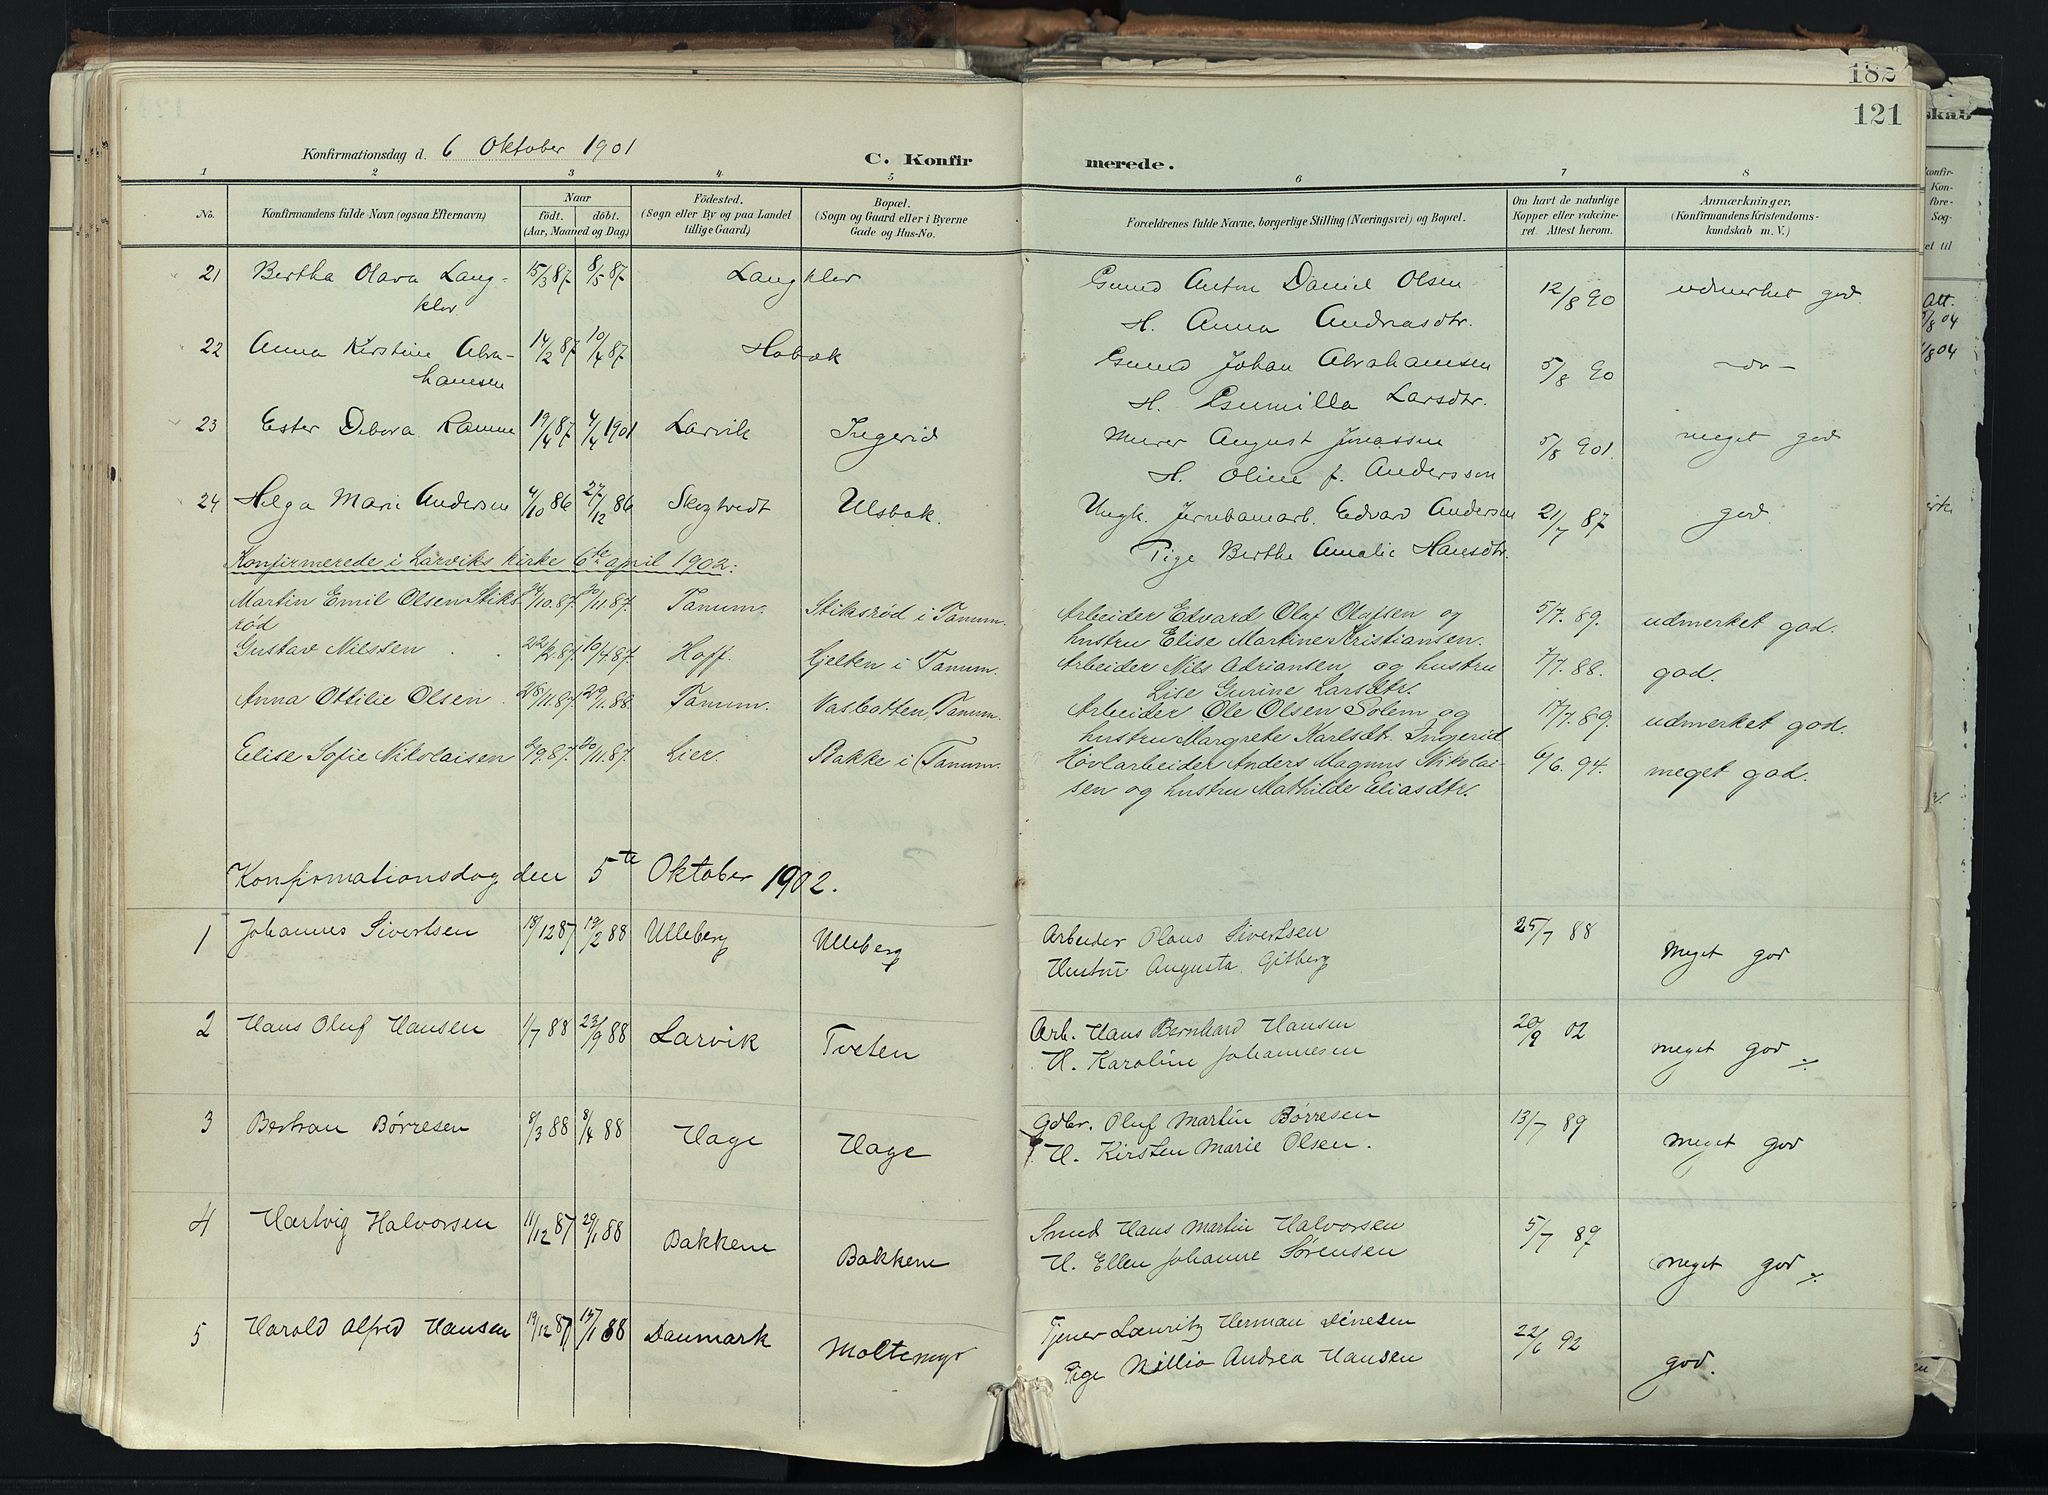 182
121
Konfirmationsdag d. 6 Oktober 1901
C. Konfir
merede.
1 2 3 4 5 6 7 8
No.
Konfirmandens fulde Navn (ogsaa Efternavn)
Naar
födt. döbt.
(Aar, Maaned og Dag)
Födested.
(Sogn eller By og paa Landet
tillige Gaard)
Bopæl.
(Sogn og Gaard eller i Byerne
Gade og Hus-No.
Forældrenes fulde Navne, borgerlige Stilling (Næringsvei) og Bopæl.
Om havt de naturlige
Kopper eller vakcine-
ret. Attest herom.
Anmærkninger,
(Konfirmandens Kristendoms-
kundskab m. V.)
21 Bertha Olava Lang- 15/3 87 8/5 87 Langklev Gmd Anton Daniel Olsen 12/8 90 udmerket god
klev H. Anna Andreasdtr.
22 Anna Kirstine Abra- 14/2 87 10/4 87 Hobæk Gmd Johan Abrahamsen 5/8 90 -do-
hamsen H. Gunnilla Larsdtr.
23 Ester Debora Ramme 19/4 87 4/4 1901 Larvik Ingerid Murer August Jonassen 5/8 901. meget god
H. Oline f. Andersson
24 Helga Marie Andersen 4/10 86 27/12 86 Skogtvedt Ulsbak. Ungk. Jernbanearb. Edvard Andersen 21/7 87 god.
Pige Berthe Amalie Hansdtr.
Konfirmerede i Larviks kirke 6te april 1902:
Martin Emil Olsen Stiks- /10.87. 20/11.87. Tanum. Stiksrød i Tanum. Arbeider Edvard Olaf Olafsen og 5/7. 89. udmerket god.
rød hustru Elise Martine Kristiansen.
Gustav Nilssen 22/2.87. 10/4.87. Hoff. Hjelten i Tanum. Arbeider Nils Adriansen og hustru 7/7. 88. god.
Lise Gurine Larsdtr.
Anna Ottilie Olsen 28/11.87. 29/1.88 Tanum. Vasbotten, Tanum. Arbeider Ole Olsen Solem og 17/7. 89. udmerket god.
hustru Margrete Karlsdt. Ingerid
Elise Sofie Nikolaisen /9.87. 20/11.87. Lier. Bakke i Tanum. Høvlarbeider Anders Magnus Nikolai- 6/6. 94. meget god.
sen og hustru Mathilde Eliasdtr.
Konfirmationsdag den 5te Oktober 1902.
1 Johannes Sivertsen 18/12 87 19/2 88 Ulleberg Ulleberg Arbeider Olaus Sivertsen 25/7 88 meget god
Hustru Augusta Gitberg
2 Hans Oluf Hansen 1/7 88 23/9 88 Larvik Tveten Arb. Hans Bernhard Hansen 20/9 02 meget god
H. Karoline Johannesen
3 Bertran Børresen 8/3 88 8/4 88 Hage Hage Gdbr. Oluf Martin Børresen 13/7 89 meget god
H. Kirsten Marie Olsen.
4 Hartvig Halvorsen 11/12 87 29/1 88 Bakkene Bakkene Smed Hans Martin Halvorsen 5/7 89 meget god
H. Ellen Johanne Sørensen
5 Harald Alfred Hansen 19/12 87 15/1 88 Danmark Moltemyr Tjener Lauritz Herman Dinesen 22/6 92 god.
Pige Nillia Andrea Hansen